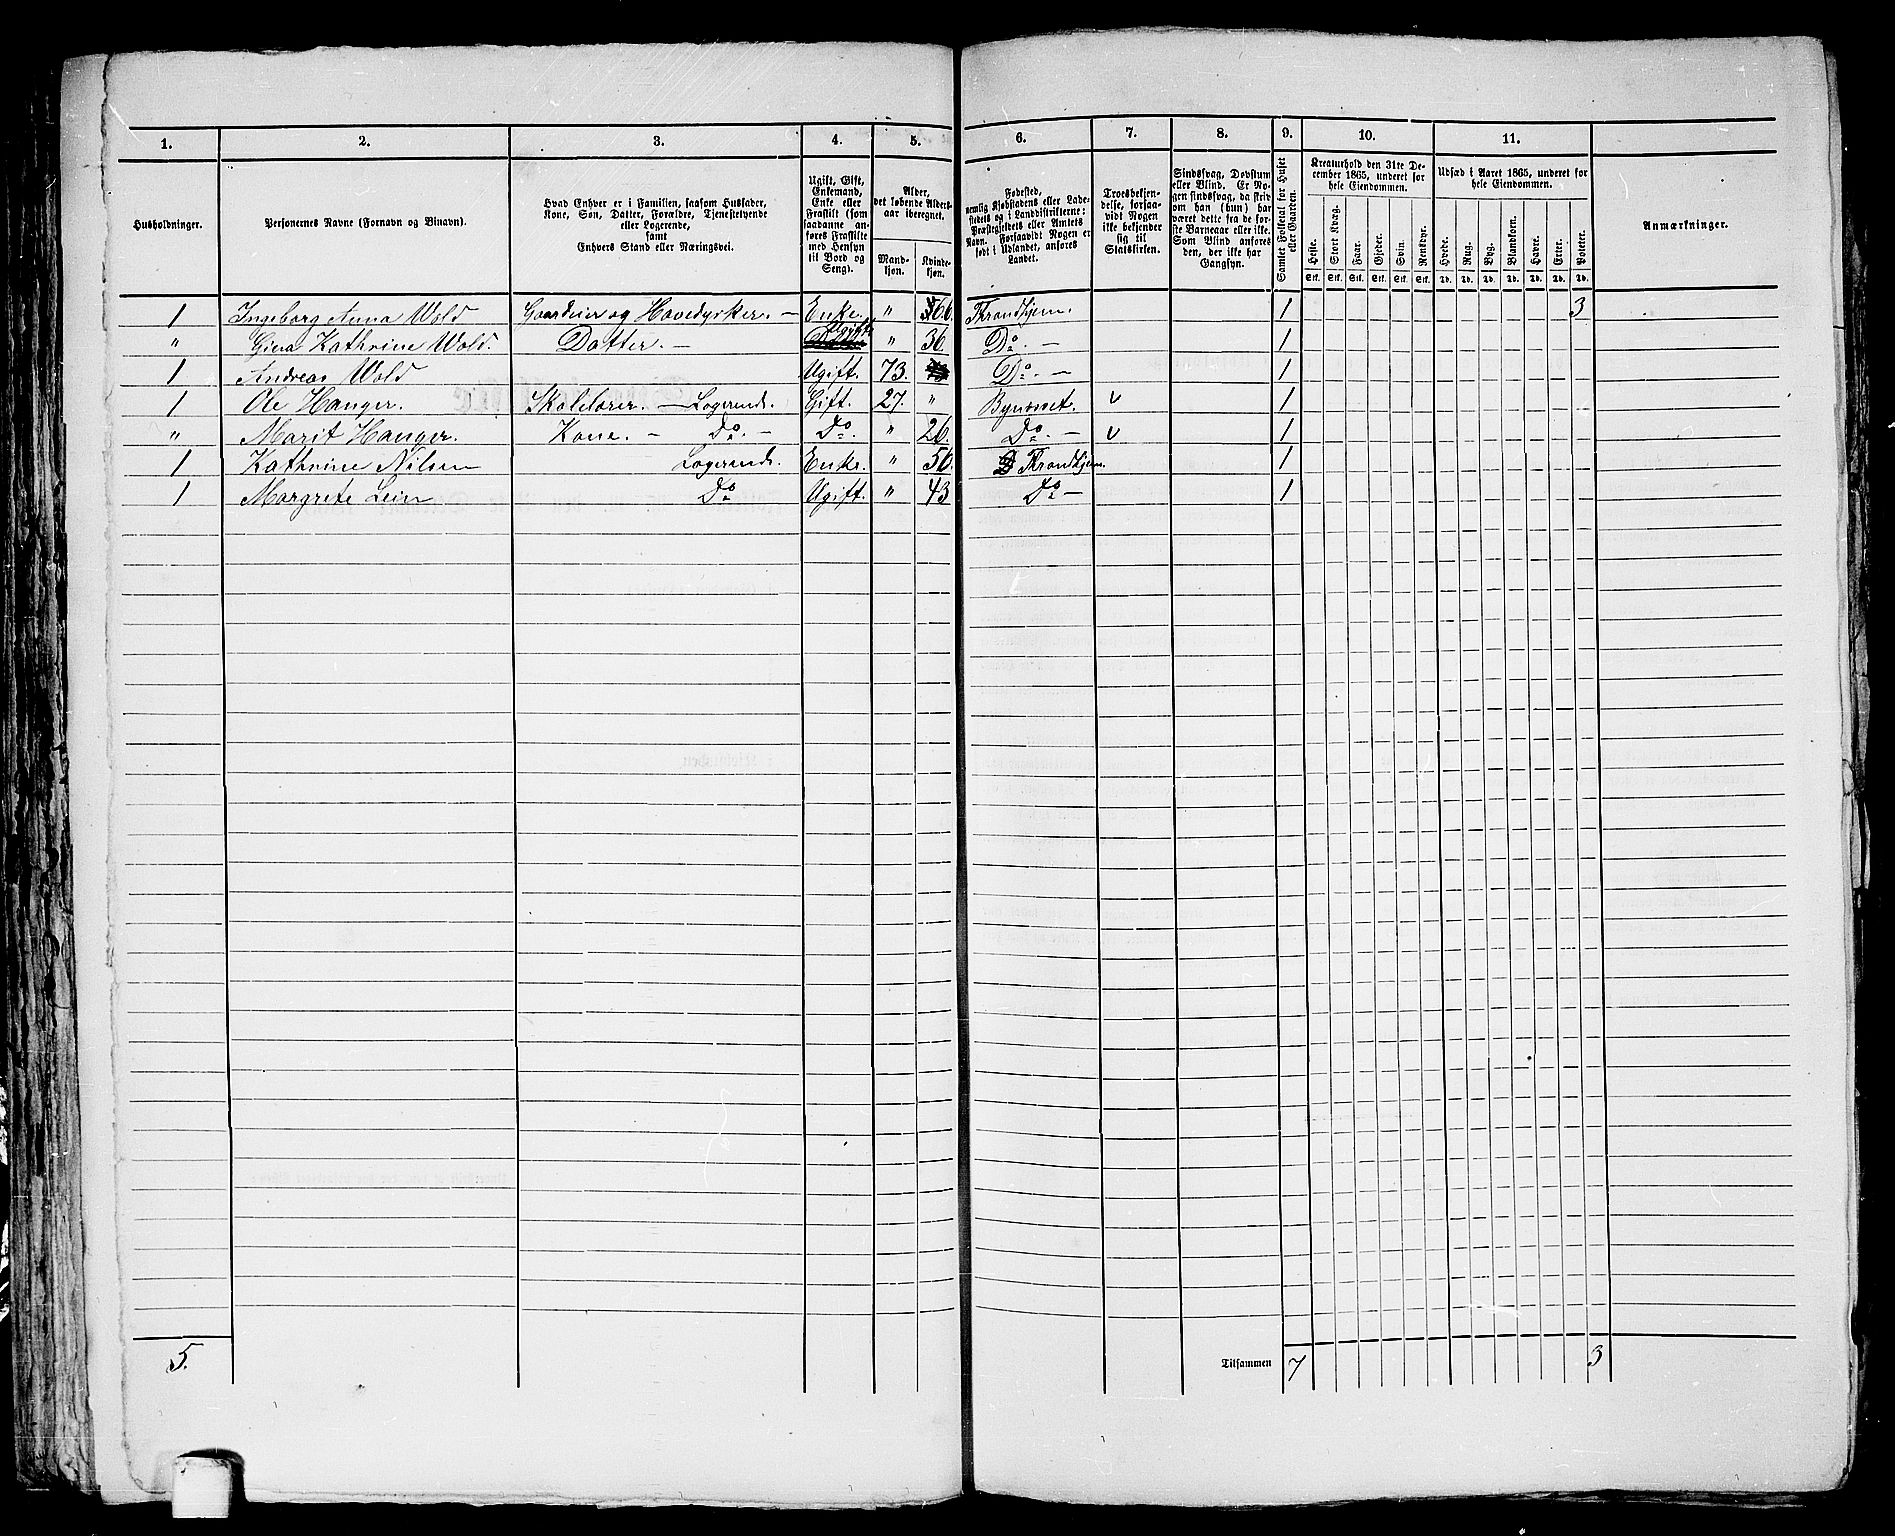 1. 2. 3. 4. 5. 6. 7. 8. 9. 10. 11.
Husholdninger.
Personernes Navne (Fornavn og Binavn).
Hvad Enhver er i Familien, saasom Husfader,
Kone, Søn, Datter, Forældre, Tjenestetyende
eller Logerende,
samt
Enhvers Stand eller Næringsvei.
Ugift, Gift,
Enkemand,
Enke eller
Fraskilt (som
saadanne an-
føres Fraskilte
med Hensyn
til Bord og
Seng).
Alder,
det løbende Alders-
aar iberegnet.
Mand-
kjøn.
Kvinde-
kjøn.
Fødested,
nemlig Kjøbstadens eller Lade-
stedets og i Landdistrikterne:
Præstegjeldets eller Amtets
Navn. Forsaavidt Nogen er
født i Udlandet, anføres
Landet.
Troesbekjen-
delse, forsaa-
vidt Nogen
ikke bekjender
sig til
Statskirken.
Sindssvag, Døvstum
eller Blind. Er No-
gen sindssvag, da skriv
om han (hun) har
været dette fra de før-
ste Barneaar eller ikke.
Som Blind anføres
den, der ikke har
Gangsyn.
Samlet Folketal for Huset
eller Gaarden.
Kreaturhold den 31te De-
cember 1865, underet for
hele Eiendommen.
Heste. Stort Kvæg. Faar. Gjeder. Svin. Rensdyr.
Stk. Stk. Stk. Stk. Stk. Stk.
Udsæd i Aaret 1865, underet for
hele Eiendommen.
Hvede. Rug. Byg. Blandkorn. Havre. Erter. Poteter.
Td. Td. Td. Td. Td. Td. Td.
Anmærkninger.
1 Ingeborg Anna Wold Gaardeier og Enke. " 66. Throndhjem. 1 3
" Gina Kathrine Wold. Datter. — Ugift " 36. Do. — 1
1 Andreas Wold Ugift. 73. Do. — 1
1 Ole Hanger. — Logerende. Gift. 27. " Bynæsset. v 1
" Marit Hanger. Kone. — Do. — Do. " 26. Do. — v 1
1 Kathrine Nilsen Logerende. Enke. " 50. Throndhjem. 1
1 Margrete Lein Do Ugift. " 43 Do — 1
5. Tilsammen 7 3